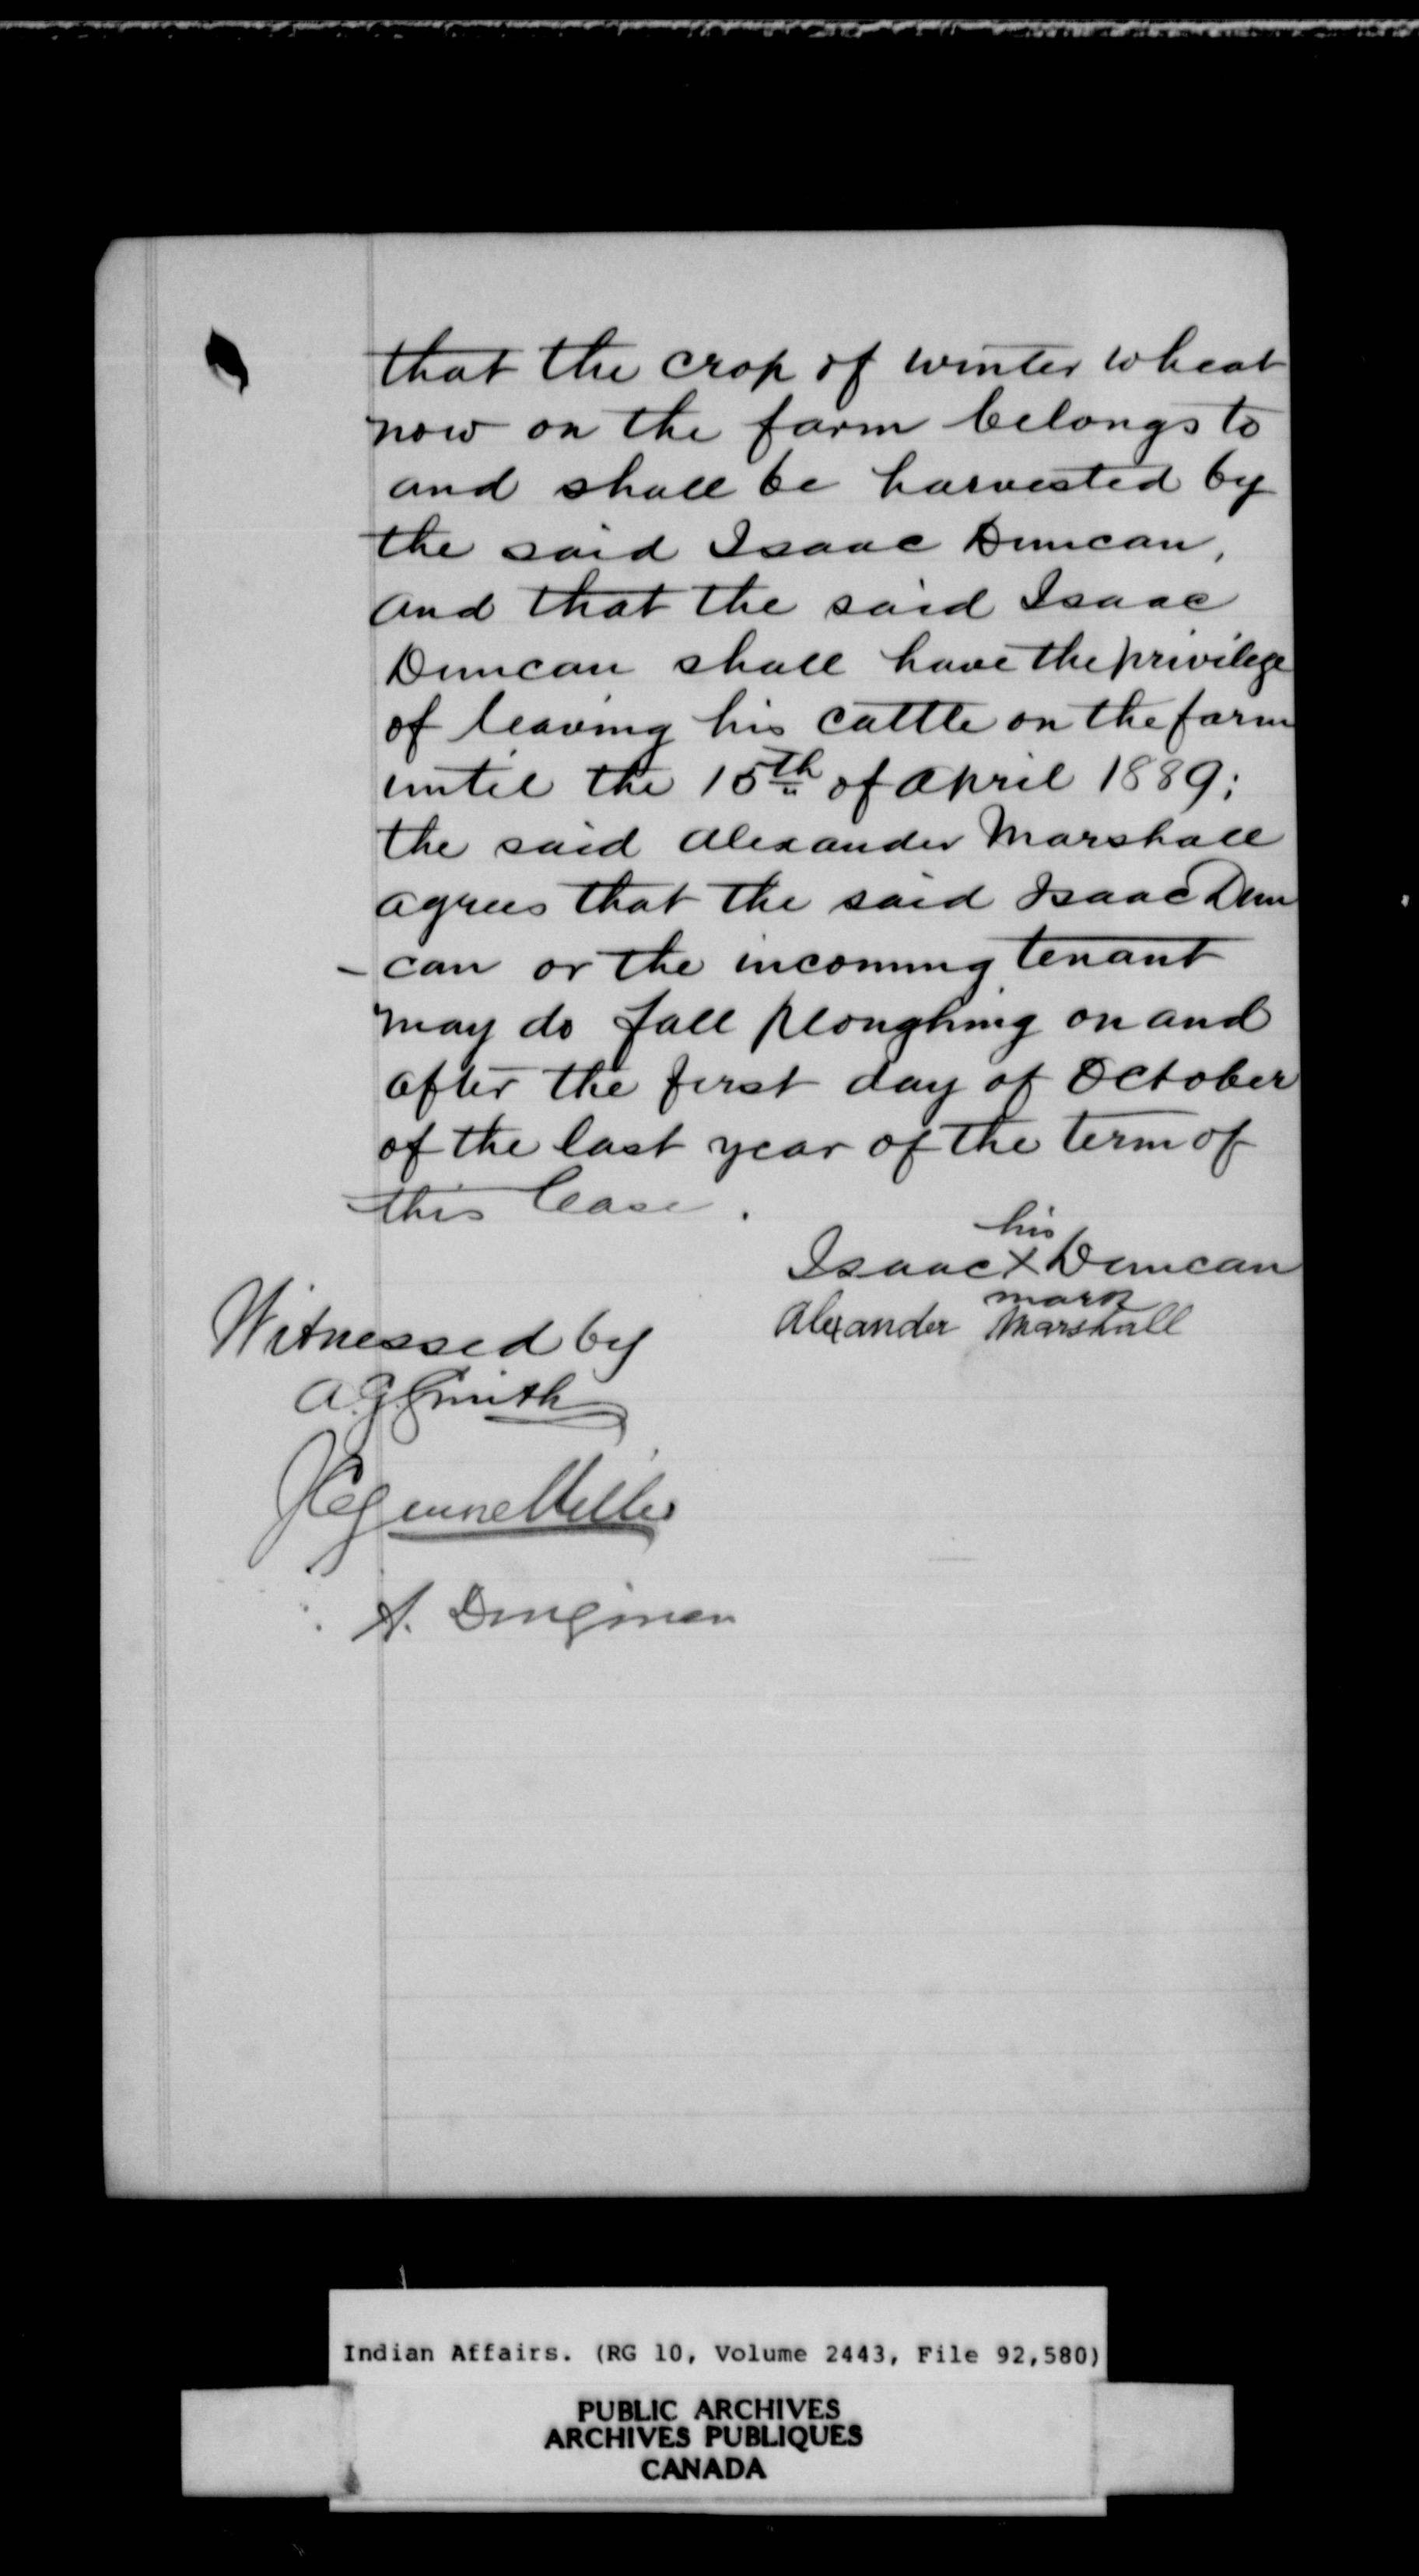 that the crop of winter wheat
now on the farm belongs to
and shall be harvested by
the said Isaac Duncan,
and that the said Isaac
Duncan shall have the privilege
of leaving his cattle on the farm
until the 15th of April 1889;
the said Alexander Marshall
agrees that the said Isaac Dun
- can or the incoming tenant
may do fall ploughing on and
after the first day of October
of the last year of the term of
this lease.
his
Isaac X Duncan
mark
Alexander Marshall
Witnessed by
A.G. Smith
A. Dingman
Indian Affairs. (RG 10, Volume 2443, File 92,580)
PUBLIC ARCHIVES
ARCHIVES PUBLIQUES
CANADA